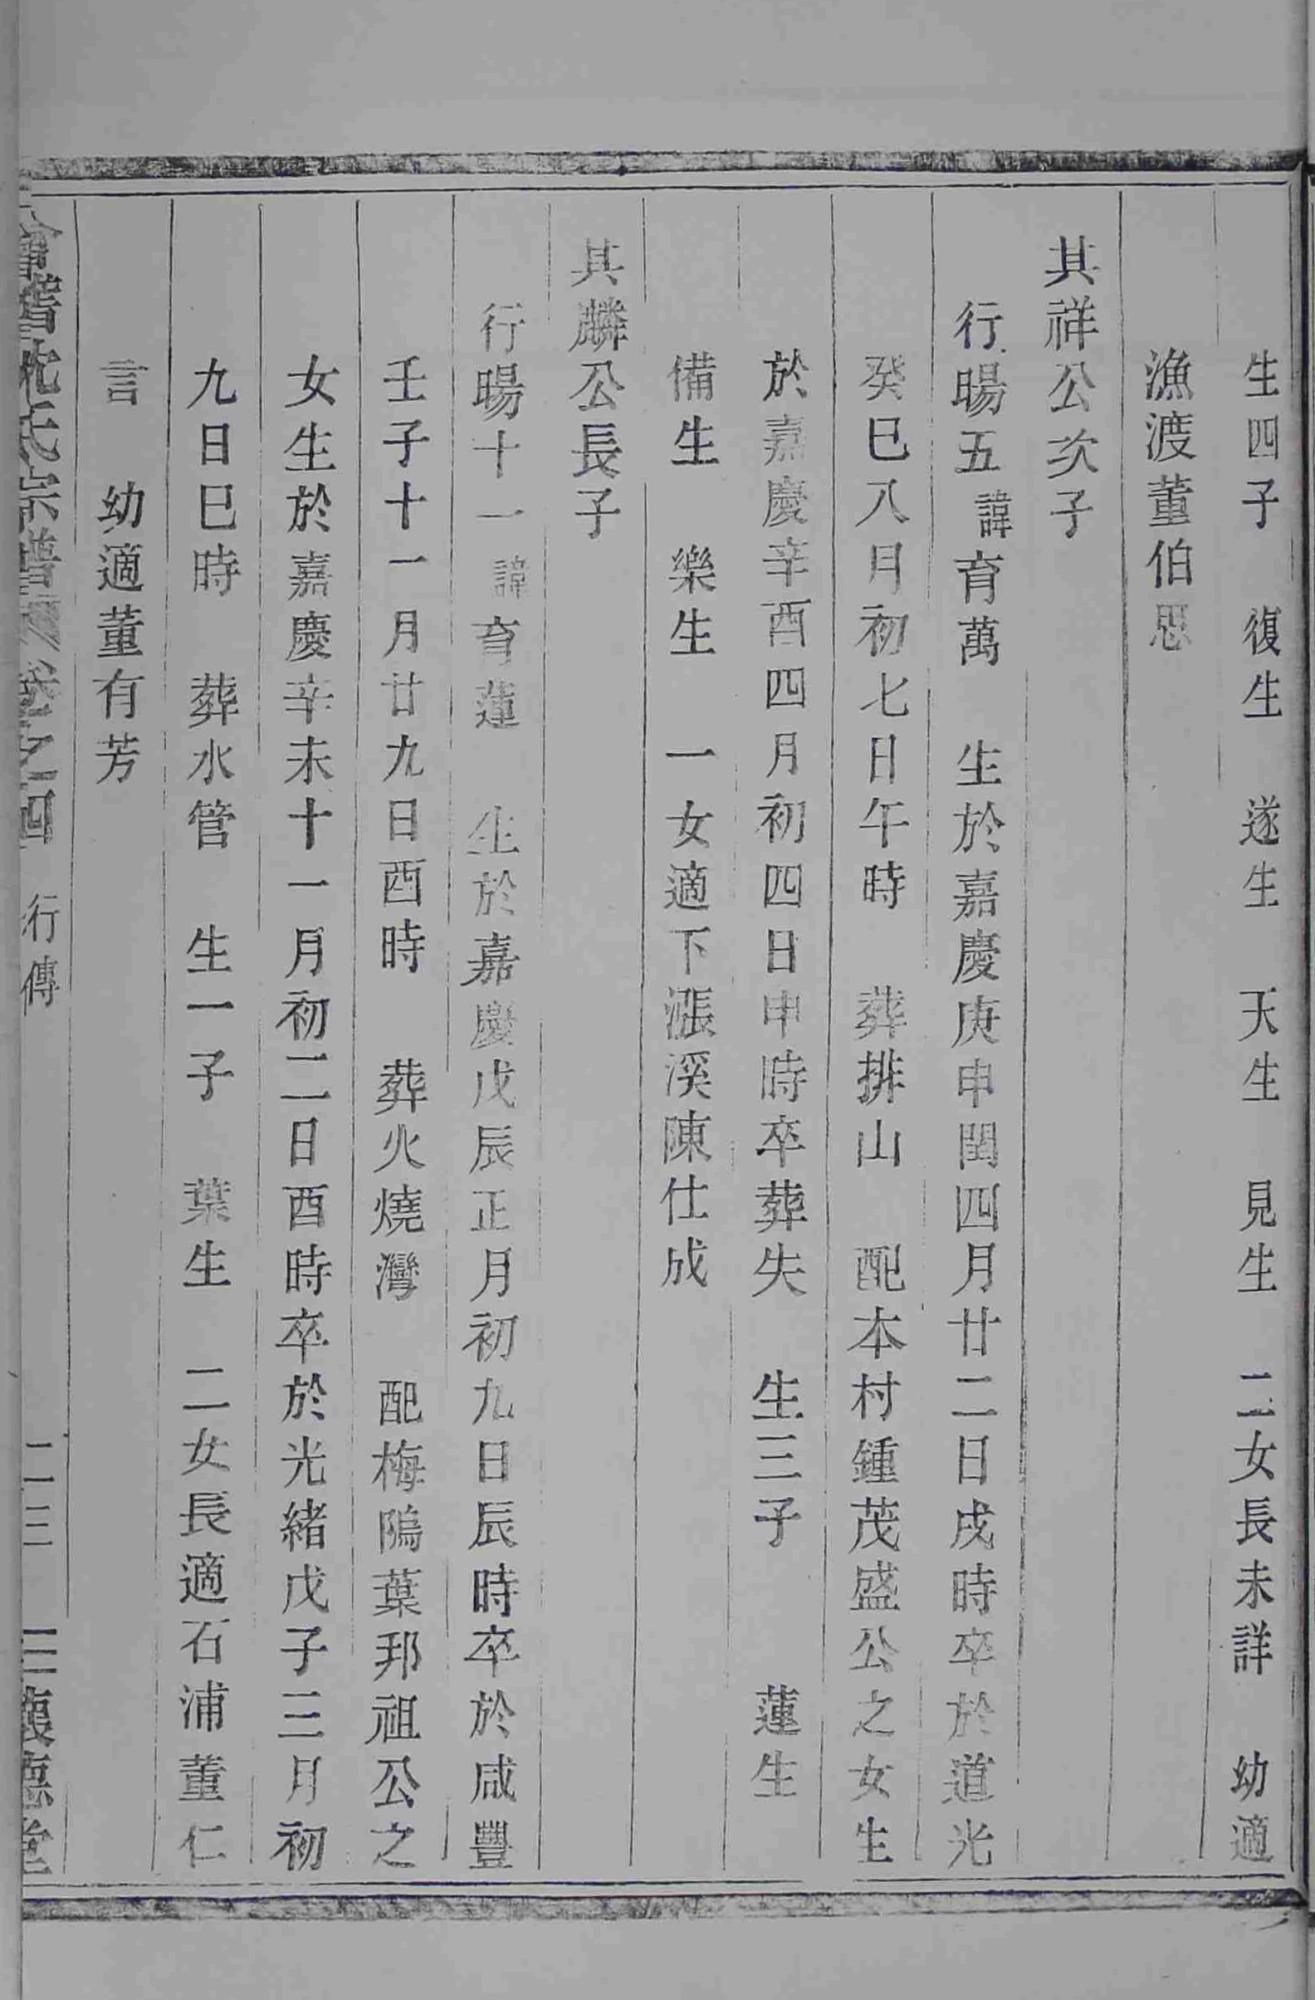 生四子　復生　遂生　天生　見生　二女長未詳　幼適
漁渡董伯思
其祥公次子
行暘五諱育萬　生於嘉慶庚申閏四月廿二日戌時卒於道光
癸巳八月初七日午時　葬排山　配本村鍾茂盛公之女生
於嘉慶辛酉四月初四日申時卒葬失　生三子　蓮生
備生　樂生　一女適下漲溪陳仕成
其麟公長子
行暘十一諱育蓮　生於嘉慶戊辰正月初九日辰時卒於咸豐
壬子十一月廿九日酉時　葬火燒灣　配梅隖葉邦祖公之
女生於嘉慶辛未十一月初二日酉時卒於光緒戊子三月初
九日巳時　葬水管　生一子　葉生　二女長適石浦董仁
言　幼適董有芳
會稽沈氏宗譜　卷之四　行傳　二三　三懷德堂